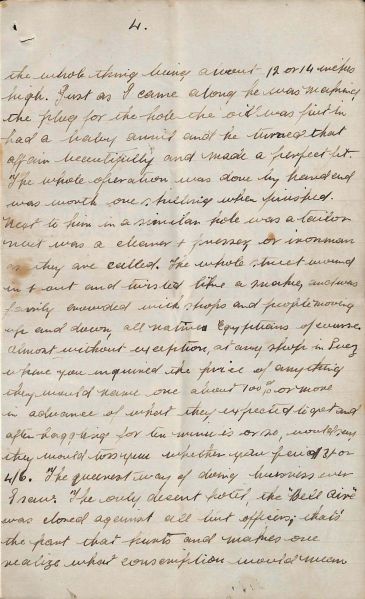 4.
the whole thing being about 12 or 14 inches
high. Just as I came along he was making
the plug for the hole the oil was put in
had a baby anvil and he turned that
affair beautifully and made a perfect fit.
The whole operation was done by hand and
was worth one shilling when finished.
Next to him in a similar hole was a tailor
next was a cleaner + presser or ironman
as they are called. The whole street wound
in + out and twisted like a snake, and was
fairly crowded with shops and people moving
up and down, all native Egyptians of course
almost without exception, at any shop in Suez
where you inquired the price of anything
they would name one about 100% or more
in advance of what they expected to get and
after haggling for ten minutes or so, would say
they would toss you whether you paid or
4/6. The queerest way of doing business ever
I saw. The only decent hotel, the "Bell Air"
was closed against all but officers; that's
the part that hurts and makes one
realize what conscription would mean